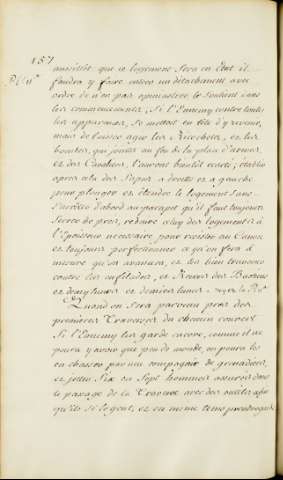 157
Pl. 11.e
aussitôt que ce logement sera en Etat il
faudra y faire entrer un détachement avec
ordre de n'en pas opiniatrer le soutient dans
les commencements, Si l'Ennemy contre toutes
les apparences, Se mettoit en tête d'y revenir,
mais de laisser agir les Ricochets, et les
bombes, qui joints au feu de la place d'armes
et des Cavaliers l'auront bientôt ecarté; établir
après cela des Sapes a droite et a gauche
pour plonger et étendre le logement Sans
S'arrêter d'abord au parapet qu'il faut toujours
Serrer de près, reduire celuy des logements à
l'Epaisseur necessaire pour resister au Canon
et toujours perfectionner ce qu'on fera à
mesure qu'on avancera, et les bien traverser
contre les enfilades, et Revers des Bastions
et demy lunes
Quand on Sera parvenu près des
premieres Traverses du chemin couvert
Si l'Ennemy les garde encore, comme il ne
poura y avoir que peu de monde, on poura les
en chasser par une compagnie de grenadiers,
et jetter Six ou Sept hommes assurés dans
le passage de la Traverse avec des outils afin
qu'ils Si logent, et en meme tems prendre